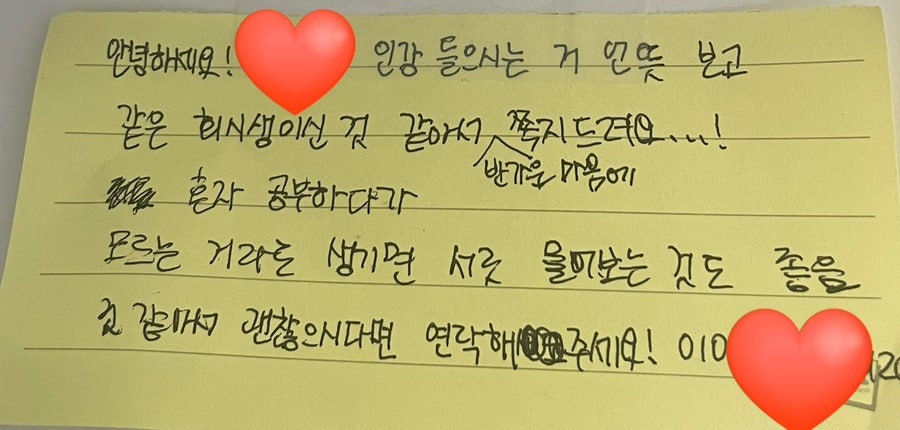 안녕하세요! 인강 들으시는 거 언뜻 보고
같은 회시생이신 것 같아서 반가운 마음에 쪽지드려요...!
혼자 공부하다가
모르는 거라도 생기면 서롯 물어보는 것도 좋을
것 같아서 괜찮으시다면 연락해주세요! 010